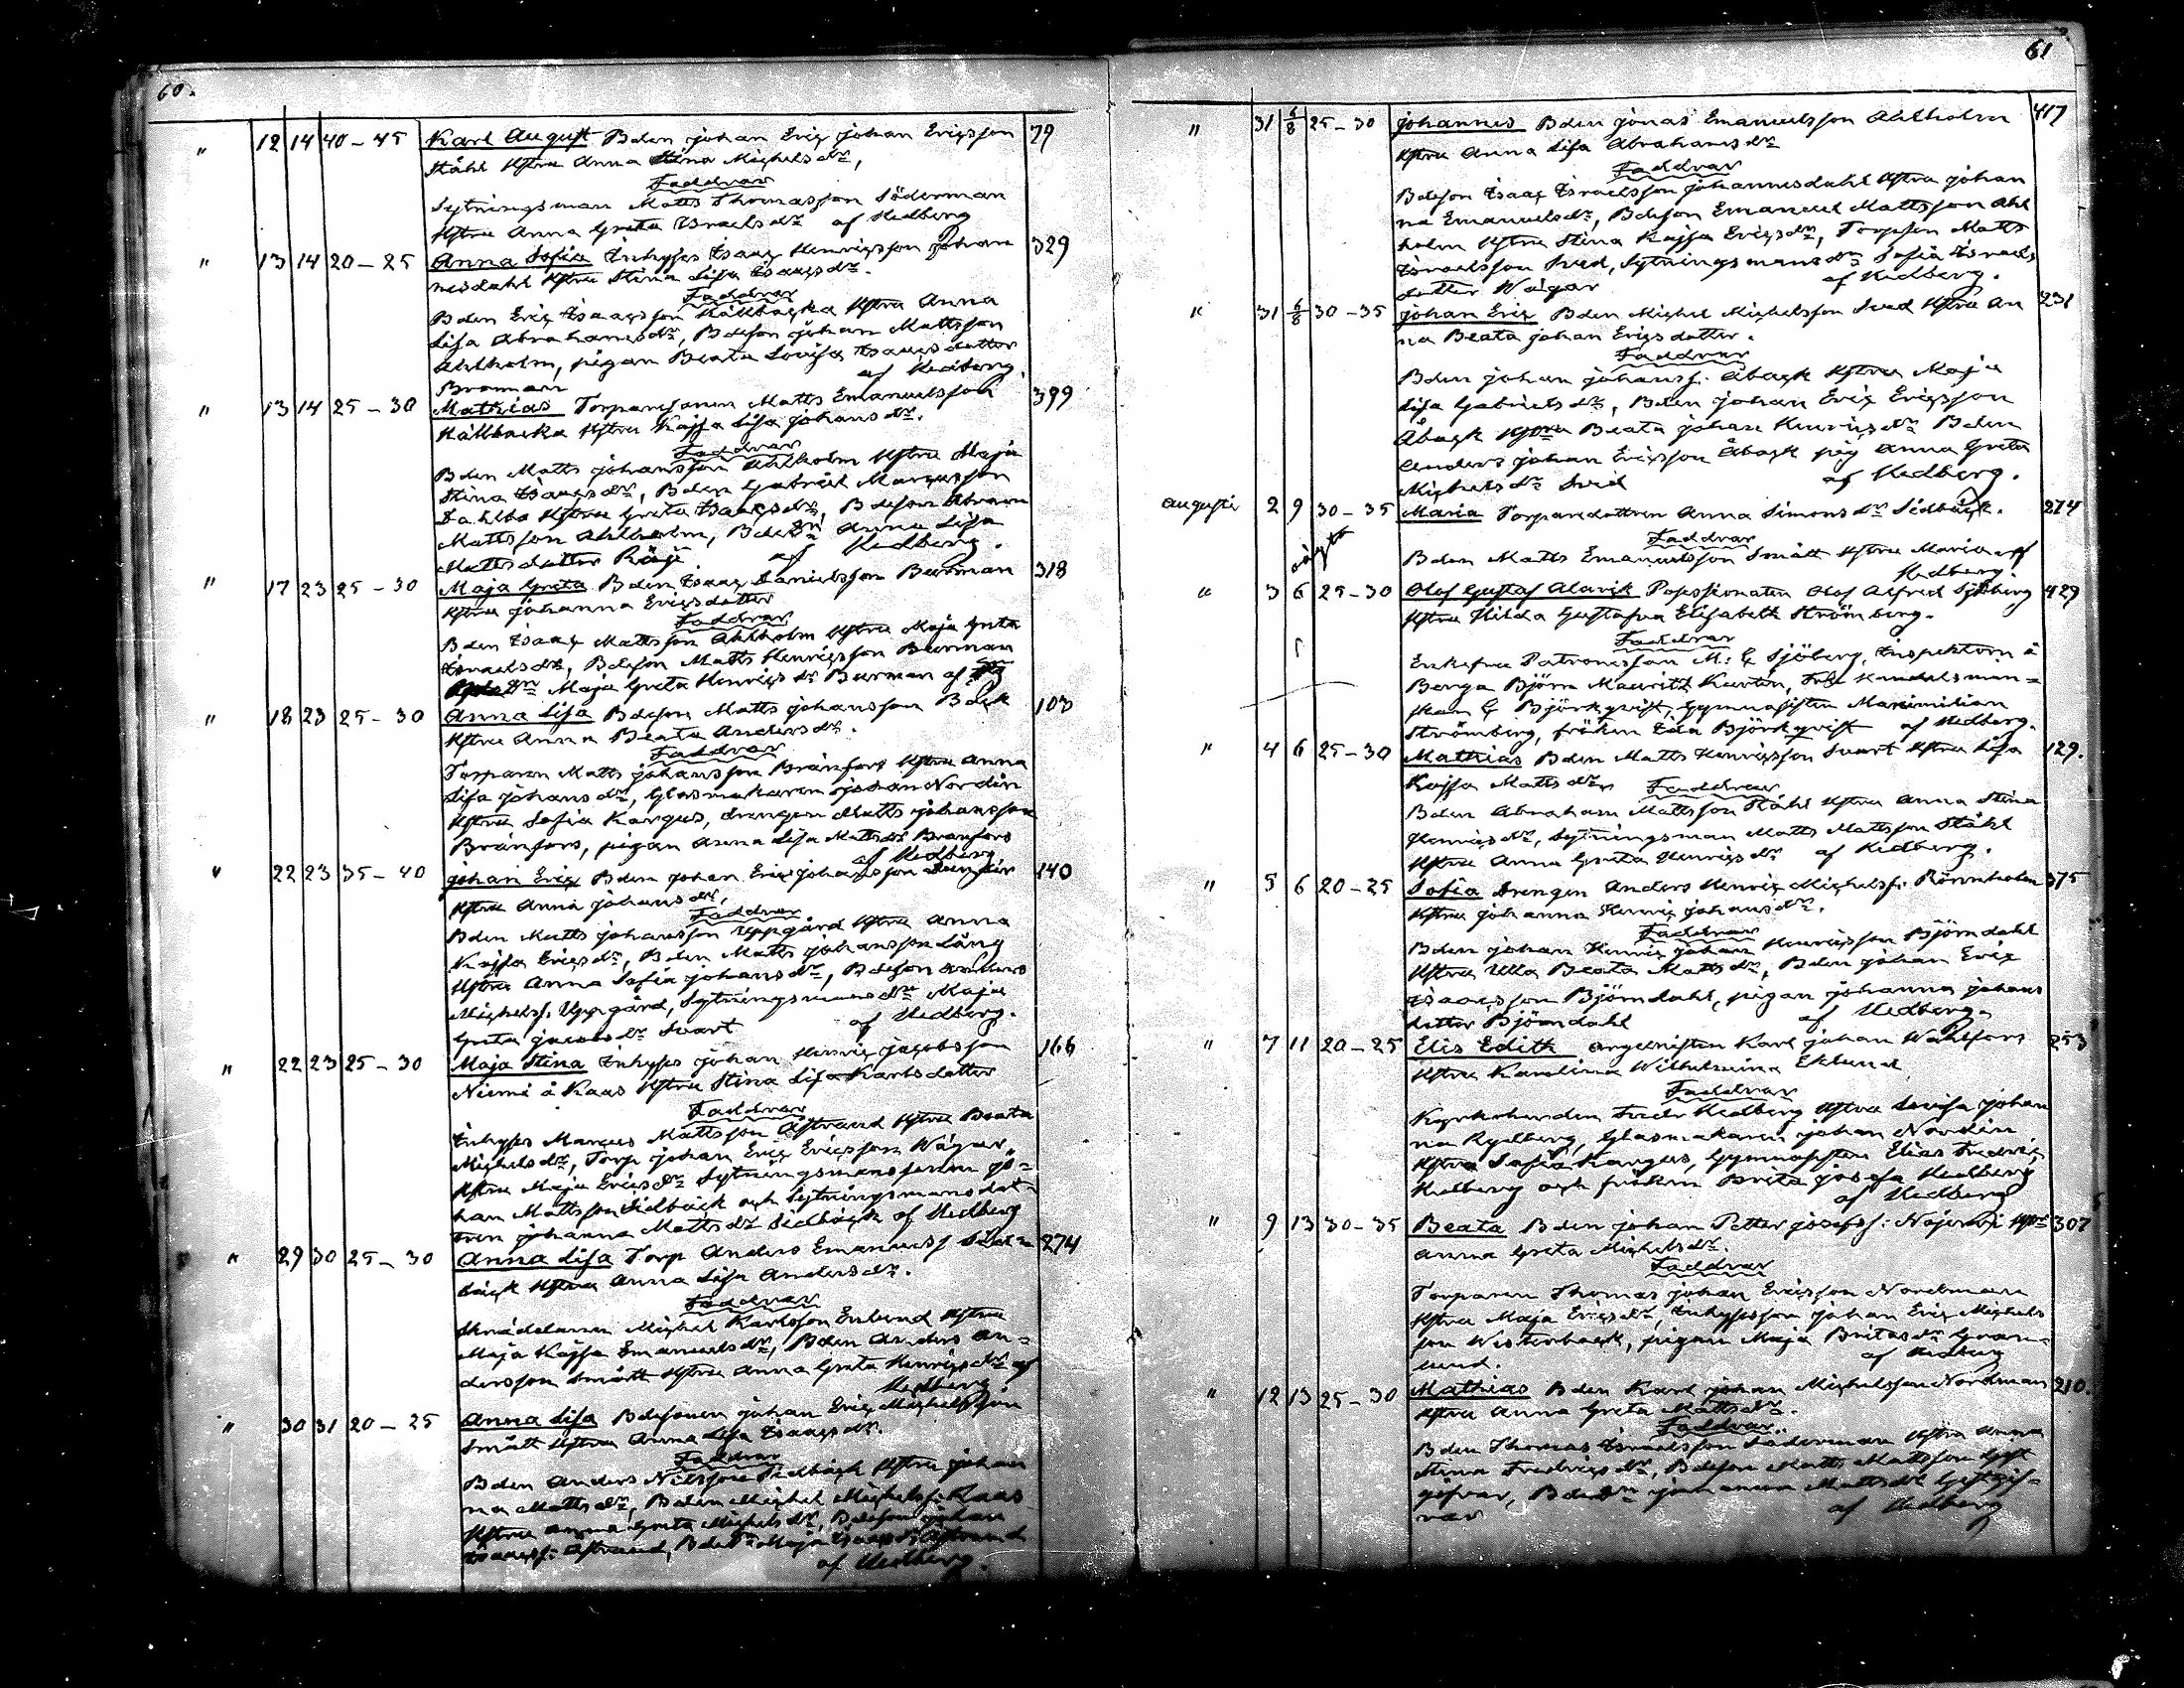 60.
" 12 14 40-45 Karl August Bden Johan Eriç Johan Ericsson 79
Ståhl Hstru Anna Stina Michelsdr,
Faddrar
Sytningsman Matts Thomasson Söderman
Hstru Anna Greta Israelsdr af Hedberg
" 13 14 20-25 Anna Sofia Inhyses Isaac Henricsson Johan 329
nesdahl Hstru Stina Lisa Isaacsdr.
Faddrar
Bden Eric Isaacsson Källbacka Hstru Anna
Lisa Abrahamsdr, Bdeson Johan Mattsson
Ahlholm, pigan Beata Lovisa Isaacsdotter
Broman af Hedberg.
" 13 14 25-30 Mathias Torparesonen Matts Emanuelsson 399
Källbacka Hstru Kajsa Lisa Johansdr.
Faddrar
Bden Matts Johansson Ahlholm Hstru Maja
Stina Isaacsdr, Bden Gabriel Marcusson
Dahlbo Hstru Greta Isaacsdr, Bdeson Abram
Mattsson Ahlholm, Bdedn Anna Lisa
Mattsdotter Röjs af Hedberg.
" 17 23 25-30 Maja Greta Bden Isaac Danielsson Burman 318
Hstru Johanna Ericsdotter
Faddrar
Bden Isaac Mattsson Ahlholm Hstru Maja Greta
Israelsdr, Bdeson Matts Henricsson Buurman
Maja Greta Henricsdr Buurman af
" 18 23 25-30 Anna Lisa Bdeson Matts Johansson Back 103
Hstru Anna Beata Andersdr.
Faddrar
Torparen Matts Johansson Bränfors Hstru Anna
Lisa Johansdr, Glasmakaren Johan Nordin
Hstru Sofia Kangus, drengen Matts Johansson
Bränfors, pigan Anna Lisa Mattsdr Bränfors
af Hedberg
" 22 23 35-40 Johan Eric Bden Johan Eric Johansson 140
Hstru Anna Johansdr,
Faddrar
Bden Matts Johansson Uppgård Hstru Anna
Kajsa Ericsdr, Bden Matts Johansson Lång
Hstru Anna Sofia Johansdr, Bdeson Anders
Michelss. Uppgård, Sytningsmansdn Maja
Greta Jacobsdr Svart af Hedberg.
" 22 23 25-30 Maja Stina Inhyses Johan Henric Jacobsson 166
Niemi å Kaas Hstru Stina Lisa Karlsdotter
Faddrar
Inhyses Marcus Mattsson Åstrand Hstru Beata
Michelsdr, Torp Johan Eric Ericsson Wägar,
Hstru Maja Ericsdr Sytningsmanssonen Jo=
han Mattsson Sidbäck och Sytningsmansdot-
tren Johanna Mattsdr Sidbäck af Hedberg
" 29 30 25-30 Anna Lisa Torp Anders Emanuelss Sid= 274
bäck Hstru Anna Lisa Andersdr.
Faddrar
Skräddaren Michel Karlsson Enlund Hstru
Maja Kajsa Emanuelsdr, Bden Anders An=
dersson Smått Hstru Anna Greta Henricsdr af
Hedberg
" 30 31 20-25 Anna Lisa Bdesonen Johan Eric Michelsson
Smått Hstru Anna Lisa Isaacsdr.
Faddrar
Bden Anders Nilsson Sidbäck Hstru Johan
na Mattsdr, Bden Michel Michelss. Kaas
Hstru Anna Greta Michelsdr, Bdeson Johan
Isaacss. Åstrand, Bdedn Maja
af Hedberg.
61
" 31 6/8 25-30 Johannes Bden Jonas Emanuelsson Ahlholm 417
Hstru Anna Lisa Abrahamsdr
Faddrar
Bdeson Isaac Israelsson Johannesdahl Hstru Johan
na Emanuelsdr, Bdeson Emanuel Mattsson Ahl
holm Hstru Stina Kajsa Ericsdr, Torpson Matts
Israelsson Sved, Sytningsmansdn Sofia Israels
dotter Wägar af Hedberg.
" 31 6/8 30-35 Johan Eric Bden Michel Michelsson Sved Hstru An 231
na Beata Johan Ericsdotter.
Faddrar
Bden Johan Johanss. Åback Hstru Maja
Lisa Gabrielsdr, Bden Johan Eric Ericsson
Åback Hstru Beata Johan Henricsdr Bden
Anders Johan Ericsson Åback pig Anna Greta
Michelsdr Sved af Hedberg.
Augusti 2 9 30-35 Maria Torparedottren Anna Simonsdr Sidbäck. 274
oägta
Faddrar
Bden Matts Emanuelsson Smått Hstru Maria af
Hedberg.
" 3 6 25-30 Olof Gustaf Alarik Possessionaten Olof Alfred Sjöberg 429
Hstru Hilda Gustafva Elisabeth Strömberg.
Faddrar
Enkefru Patronessan M: C Sjöberg, Inspektorn å
Berga Björn Mauritz Kurtén, Handelsman=
skan C Björkqvist, Gymnasisten Maximilian
Strömberg, fröken Ida Björkqvist af Hedberg.
" 4 6 25-30 Mathias Bden Matts Henricsson Svart Hstru Lisa 129.
Kajsa Mattsdr, Faddrar
Bden Abraham Mattsson Ståhl Hstru Anna Stina
Henricsdr, Sytningsman Matts Mattsson Ståhl
Hstru Anna Greta Henricsdr af Hedberg.
" 5 6 20-25 Sofia Drengen Anders Henric Michelss. Rönnholm 375
Hstru Johanna Henric Johansdr.
Faddrar
Bden Johan Henric Johan Henricsson Björndahl
Hstru Ulla Beata Mattsdr, Bden Johan Eric
Isaacsson Björndahl, pigan Johanna Johans
dotter Björndahl af Hedberg.
" 7 11 20-25 Elis Edith Orgelnisten Karl Johan Wahlfors 253
Hstru Karolina Wilhelmina Eklund
Faddrar
Kyrkoherden Fredr Hedberg Hstru Lovisa Johan
na Kjellberg, Glasmakaren Johan Nordin
Hstru Sofia Kangus, Gymnasisten Elias Fredric
Hedberg och fröken Brita Josefa Hedberg
af Hedberg
" 9 13 30-35 Beata Bden Johan Petter Josefss: Najervi Hstru 307
Anna Greta Michelsdr.
Faddrar
Torparen Thomas Johan Ericsson Nordman
Hstru Maja Ericsdr, Inhysesson Johan Eric Michels
son Westerback, pigan Maja Britasdr Gran=
lund. af Hedberg
" 12 13 25-30 Mathias Bden Karl Johan Michelsson Nordman 210.
Hstru Anna Greta Mattsdr.
Faddrar
Bden Thomas Israelsson Söderman Hstru Anna
Stina Fredricsdr, Bdeson Matts Mattsson Gäst
gifvar, Bdedn Johanna Mattsdr Gästgif=
var af Hedberg